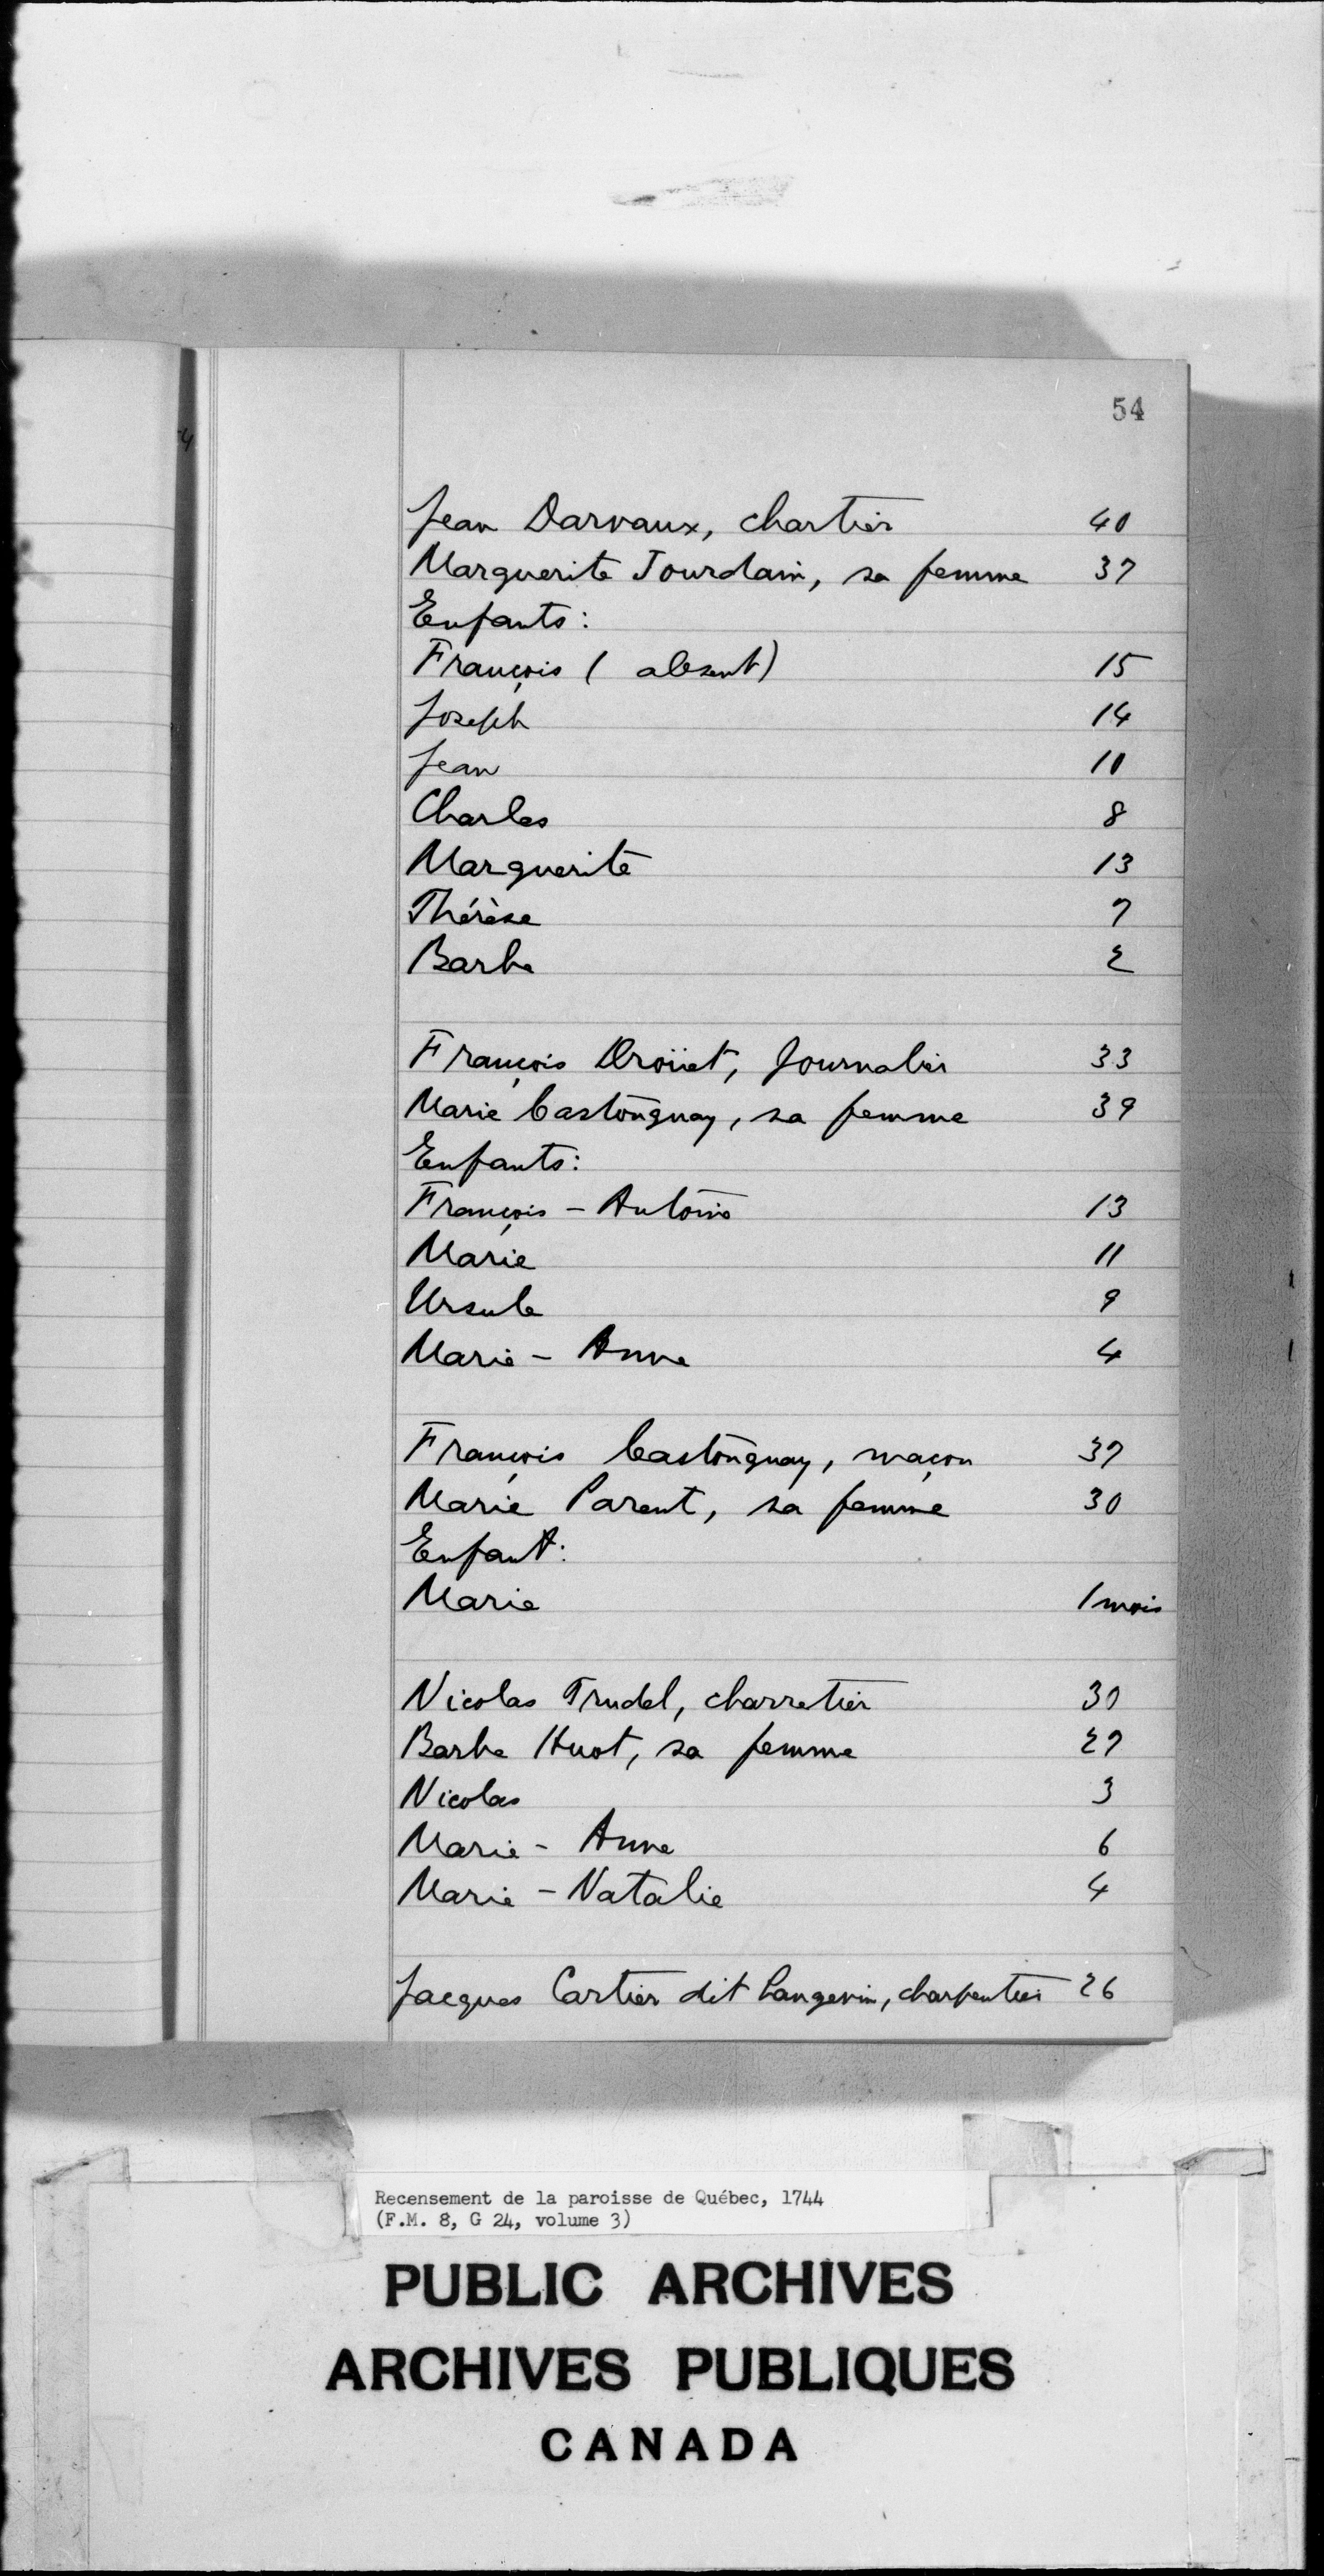 54
Jean Darvaux, chartier 40
Marguerite Jourdain, sa femme 37
Enfants:
François ( absent) 15
Joseph 14
Jean 10
Charles 8
Marguerite 13
Thérèse 7
Barbe 2
François Droüet, Journalier 33
Marie Castonguay, sa femme 39
Enfants:
François - Antoine 13
Marie 11
Ursule 9
Marie - Anne 4
François Castonguay, maçon 37
Marie Parent, sa femme 30
Enfant:
Marie 1 mois
Nicolas Trudel, charretier 30
Barbe Huot, sa femme 27
Nicolas 3
Marie - Anne 6
Marie - Natalie 4
Jacques Cartier dit Langevin, charpentier 26
Recensement de la paroisse de Québec, 1744
(F.M. 8, G 24, volume 3)
PUBLIC ARCHIVES
ARCHIVES PUBLIQUES
CANADA